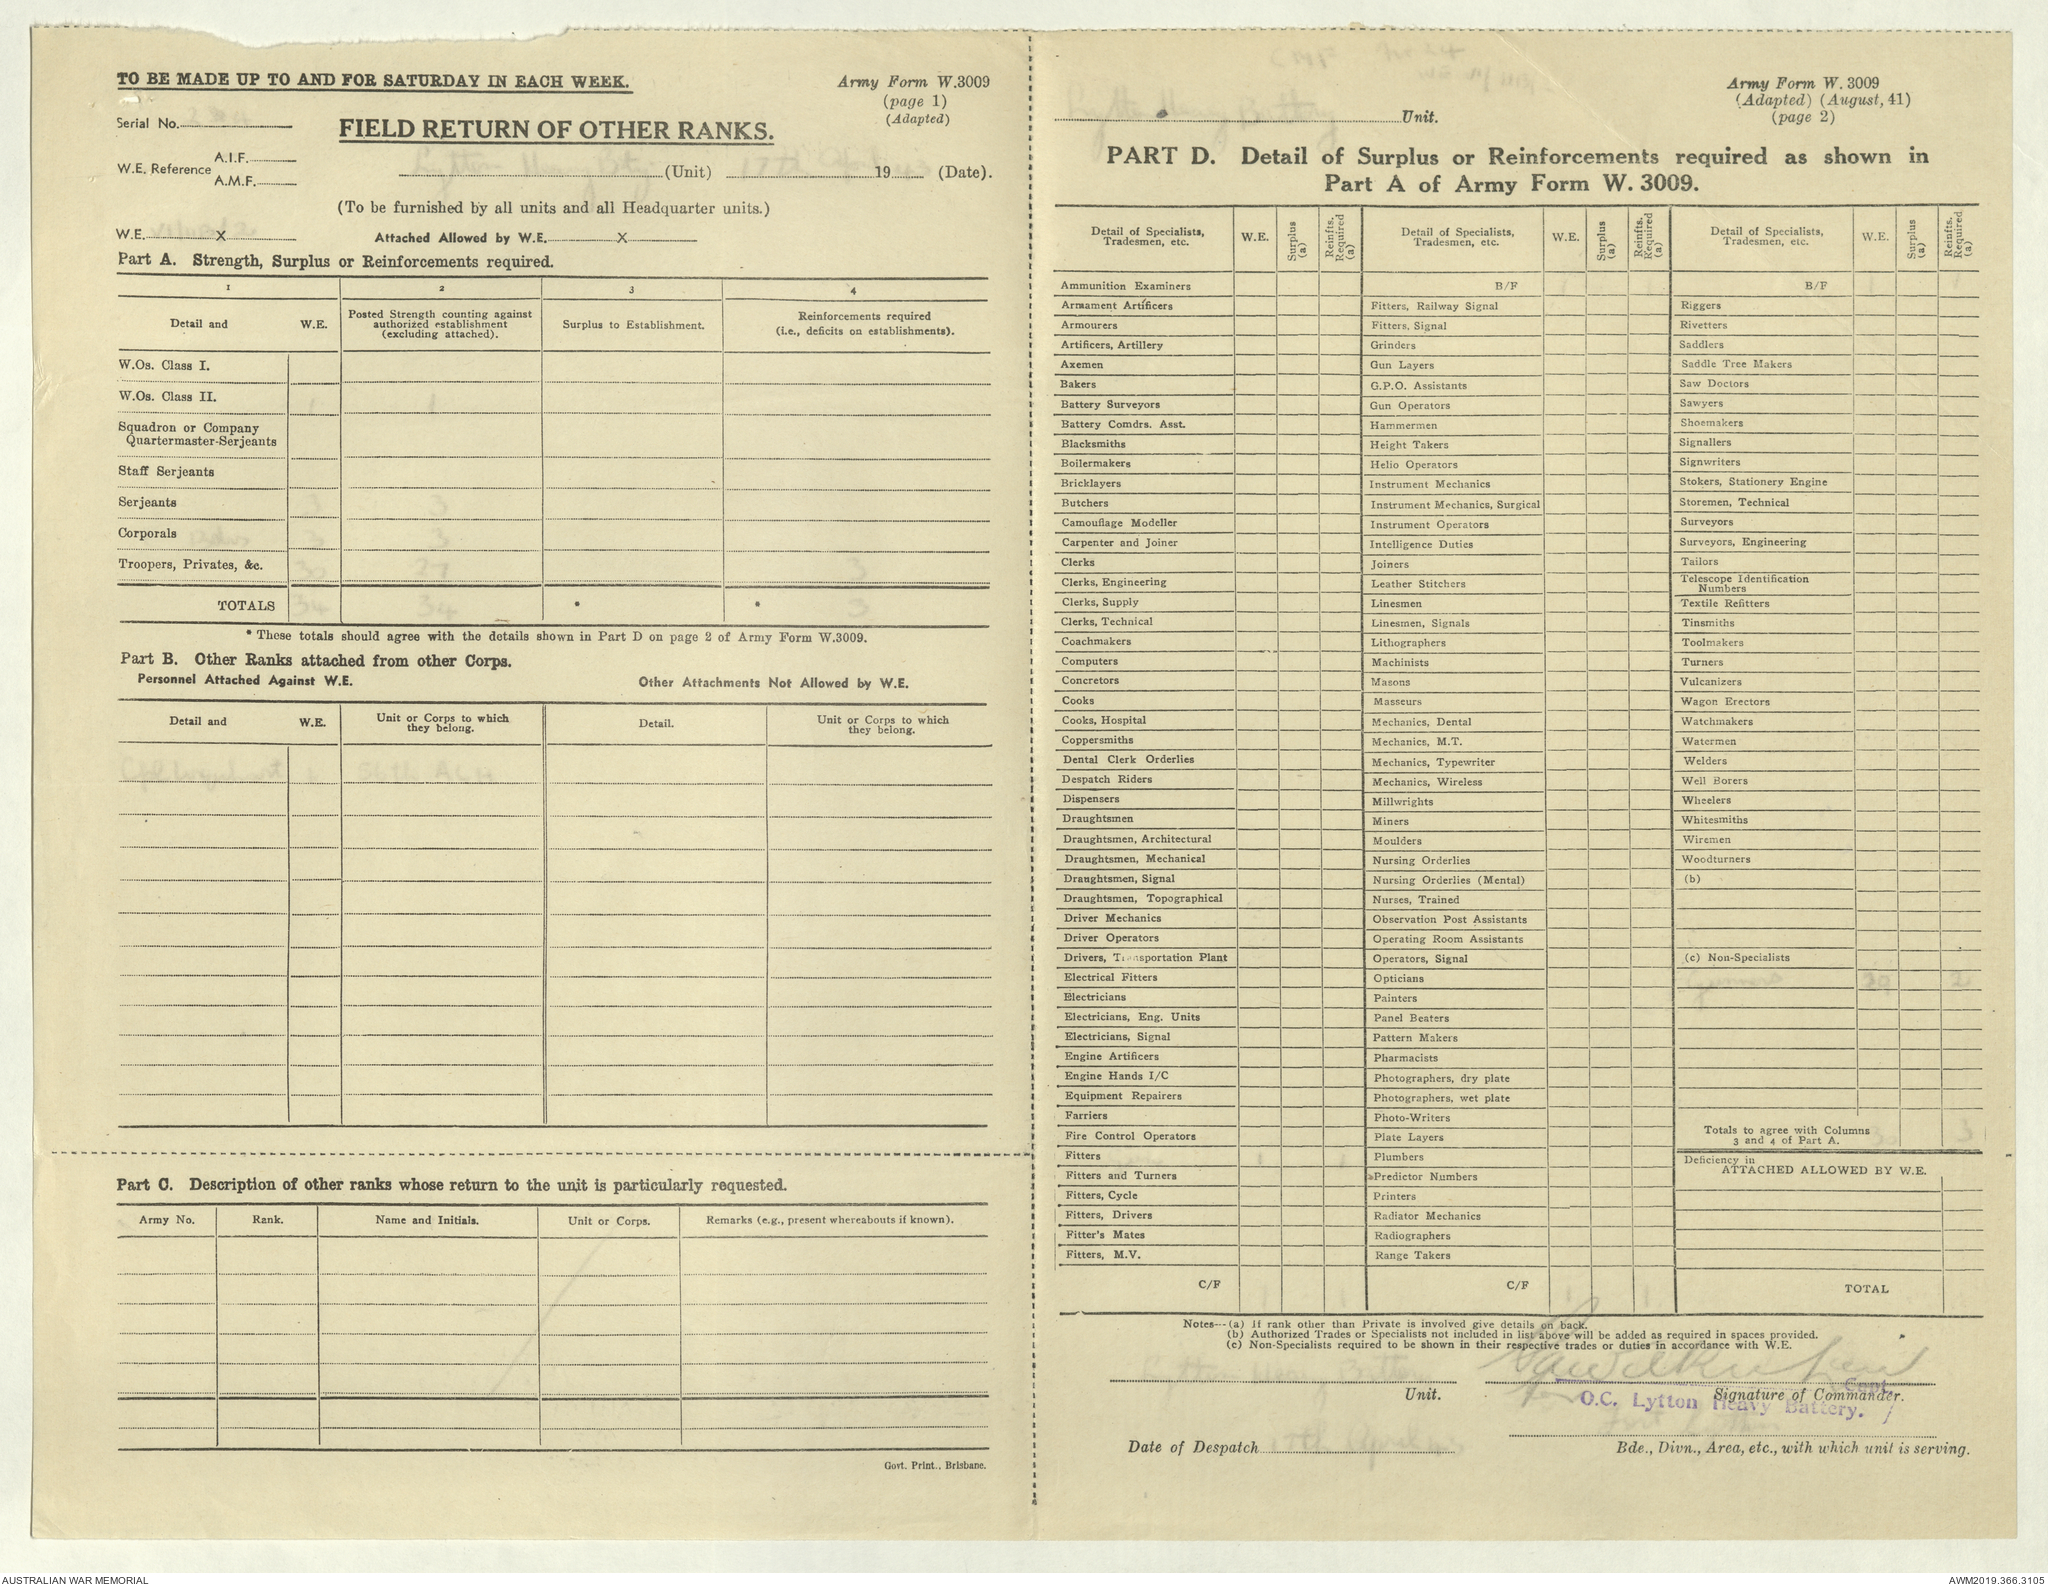 TO BE MADE UP TO AND FOR SATURDAY IN EACH WEEK.
Army Form W.3009
(page 1)
(Adapted)
Serial No.
FIELD RETURN OF OTHER RANKS.
W.E. Reference A.I.F.
A.M.F.
Lytton Heavy Bty (Unit) 17th April 19 (Date).
(To be furnished by all units and all Headquarter units.)
W.E. X Attached Allowed by W.E. X
Part A. Strength, Surplus or Reinforcements required.
1 2 3 4
Detail and W.E.
Posted Strength counting against
authorized establishment
(excluding attached).
Surplus to Establishment.
Reinforcements required
(i.e., deficits on establishments).
W.Os. Class I.
W.Os. Class II. 1 1
Squadron or Company
Quartermaster-Serjeants
Staff Serjeants
Serjeants 3
Corporals 3 3
Troopers, Privates, &c. 30 27 3
TOTALS 34 * * 3
* These totals should agree with the details shown in Part D on page 2 of Army Form W.3009.
Part B. Other Ranks attached from other Corps.
Personnel Attached Against W.E. Other Attachments Not Allowed by W.E.
Detail and W.E.
Unit or Corps to which
they belong.
Detail.
Unit or Corps to which
they belong.
Part C. Description of other ranks whose return to the unit is particularly requested.
Army No. Rank. Name and Initials. Unit or Corps. Remarks (e.g., present whereabouts if known).
Govt. Print., Brisbane.
Battery Unit.
Army Form W. 3009
(Adapted) (August, 41)
(page 2)
PART D. Detail of Surplus or Reinforcements required as shown in
Part A of Army Form W. 3009.
Detail of Specialists,
Tradesmen, etc.
W.E.
Surplus
(a)
Reinfts.
Required
(a)
Ammunition Examiners
Armament Artificers
Armourers
Artificers, Artillery
Axemen
Bakers
Battery Surveyors
Battery Comdrs. Asst.
Blacksmiths
Boilermakers
Bricklayers
Butchers
Camouflage Modeller
Carpenter and Joiner
Clerks
Clerks, Engineering
Clerks, Supply
Clerks, Technical
Coachmakers
Computers
Concretors
Cooks
Cooks, Hospital
Coppersmiths
Dental Clerk Orderlies
Despatch Riders
Dispensers
Draughtsmen
Draughtsmen, Architectural
Draughtsmen, Mechanical
Draughtsmen, Signal
Draughtsmen, Topographical
Driver Mechanics
Driver Operators
Drivers, Transportation Plant
Electrical Fitters
Electricians
Electricians, Eng. Units
Electricians, Signal
Engine Artificers
Engine Hands I/C
Equipment Repairers
Farriers
Fire Control Operators
Fitters 1 1
Fitters and Turners
Fitters, Cycle
Fitters, Drivers
Fitter's Mates
Fitters, M.V.
C/F 1 1
Detail of Specialists,
Tradesmen, etc.
W.E.
Surplus
(a)
Reinfts.
Required
(a)
B/F
Fitters, Railway Signal
Fitters, Signal
Grinders
Gun Layers
G.P.O. Assistants
Gun Operators
Hammermen
Height Takers
Helio Operators
Instrument Mechanics
Instrument Mechanics, Surgical
Instrument Operators
Intelligence Duties
Joiners
Leather Stitchers
Linesmen
Linesmen, Signals
Lithographers
Machinists
Masons
Masseurs
Mechanics, Dental
Mechanics, M.T.
Mechanics, Typewriter
Mechanics, Wireless
Millwrights
Miners
Moulders
Nursing Orderlies
Nursing Orderlies (Mental)
Nurses, Trained
Observation Post Assistants
Operating Room Assistants
Operators, Signal
Opticians
Painters
Panel Beaters
Pattern Makers
Pharmacists
Photographers, dry plate
Photographers, wet plate
Photo-Writers
Plate Layers
Plumbers
Predictor Numbers
Printers
Radiator Mechanics
Radiographers
Range Takers
C/F 1 1
Detail of Specialists,
Tradesmen, etc.
W.E.
Surplus
(a)
Reinfts.
Required
(a)
B/F
Riggers
Rivetters
Saddlers
Saddle Tree Makers
Saw Doctors
Sawyers
Shoemakers
Signallers
Signwriters
Stokers, Stationery Engine
Storemen, Technical
Surveyors
Surveyors, Engineering
Tailors
Telescope Identification
Numbers
Textile Refitters
Tinsmiths
Toolmakers
Turners
Vulcanizers
Wagon Erectors
Watchmakers
Watermen
Welders
Well Borers
Wheelers
Whitesmiths
Wiremen
Woodturners
(b)
(c) Non-Specialists
Gunners 29 2
Totals to agree with Columns
3 and 4 of Part A. 3
Deficiency in
ATTACHED ALLOWED BY W.E.
TOTAL
Notes—(a) If rank other than Private is involved give details on back.
(b) Authorized Trades or Specialists not included in list above will be added as required in spaces provided.
(c) Non-Specialists required to be shown in their respective trades or duties in accordance with W.E.
Lytton Heavy Battery
Unit.
Signature of Commander.
Capt.
O.C. Lytton Heavy Battery.
Date of Despatch 17th April
Bde., Divn., Area, etc., with which unit is serving.
AUSTRALIAN WAR MEMORIAL
AWM2019.366.3105